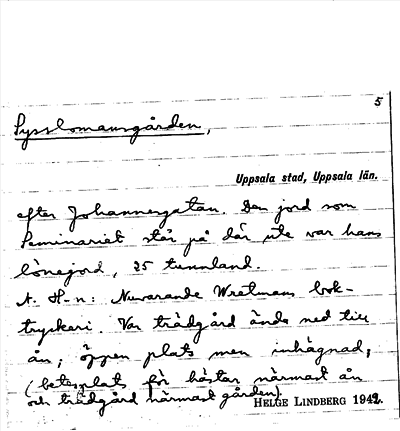 5
Sysslomansgården,
Uppsala stad, Uppsala län.
efter Johannesgatan. Den jord som
Seminariet står på där ute var hans
lönejord, 25 tunnland.
A. H-n: Nuvarande Wretmans bok-
tryckeri. Var trädgård ända ned till
ån; öppen plats men inhägnad,
(betesplats för hästar närmast ån
och trädgård närmast gården)
HELGE LINDBERG 1942.